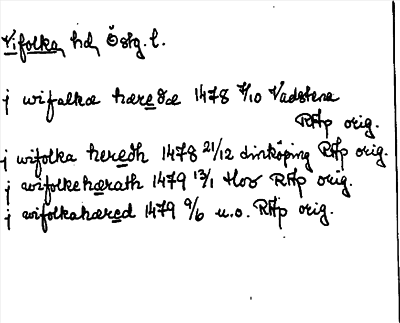 Vifolka, hd, Östg. l.
j wifalkæ hæredæ 1478 7/10 Vadstena
RAp orig.
j wifolka heredh 1478 21/12 Linköping RAp orig.
j wifolkehærath 1479 13/1 Hov RAp orig.
j wifolkahæred 1479 9/6 u.o. RAp orig.